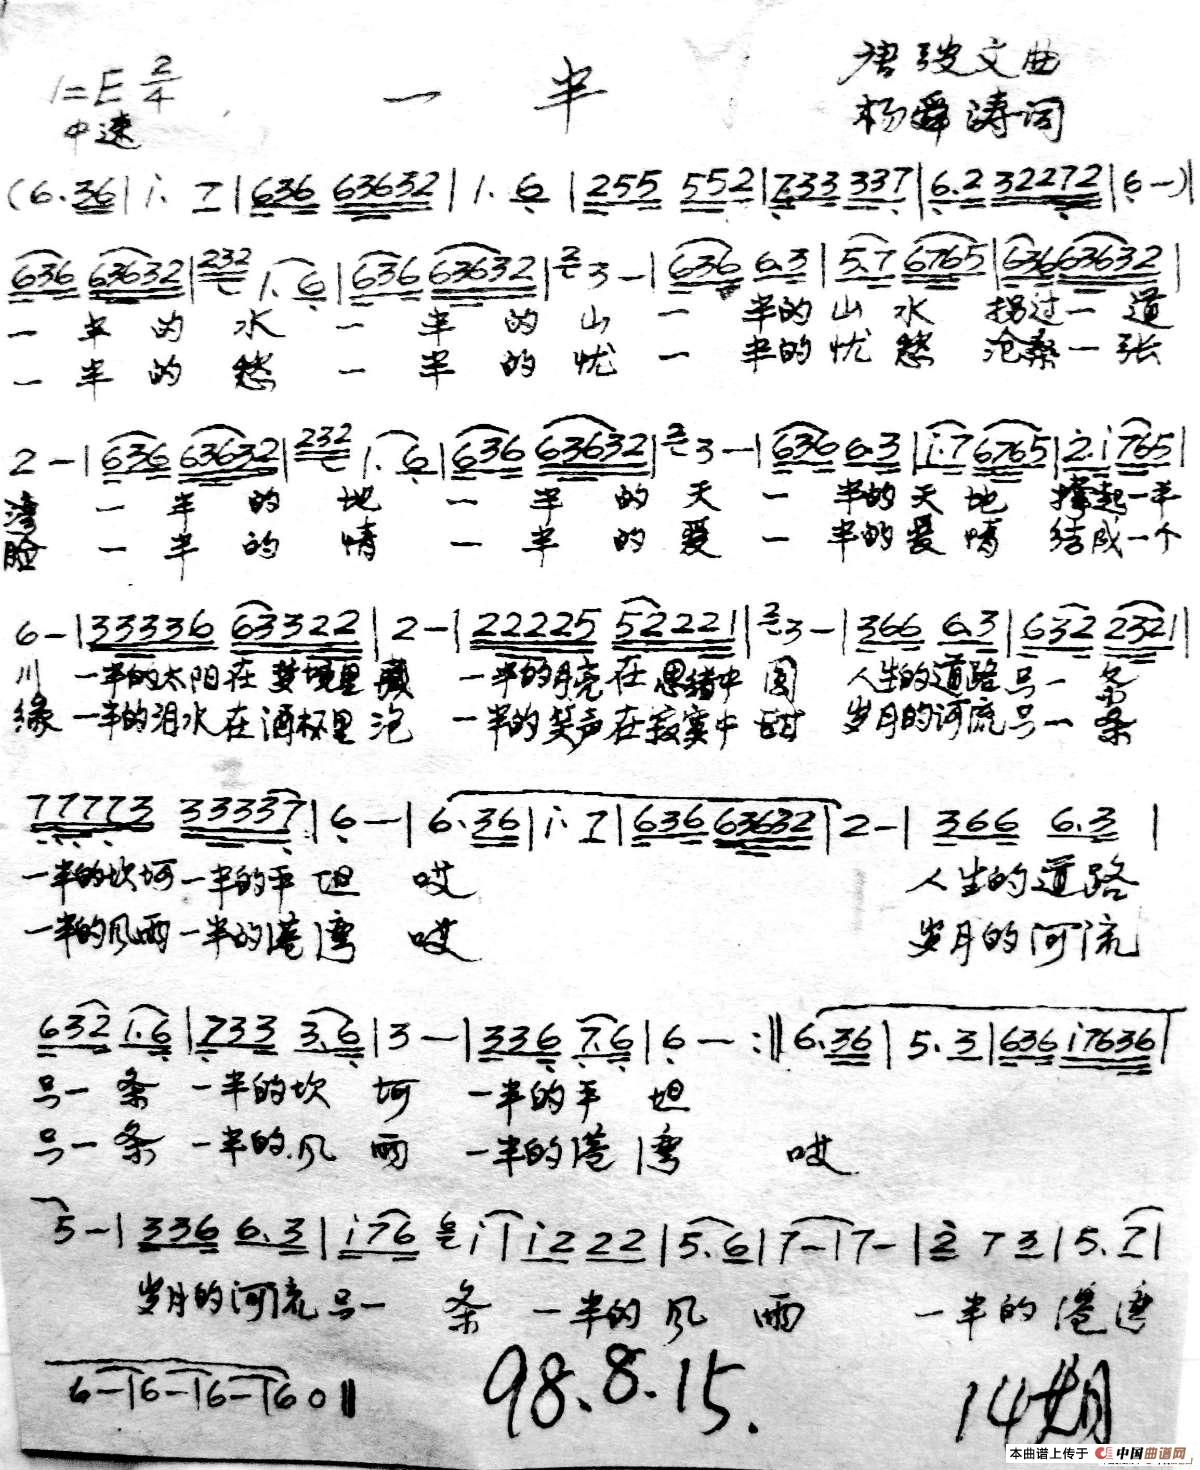 1=E 2/4
中速
一 半
唐跛文曲
杨舜涛词
(6.36|i. 7|636 63632|1. 6|255 552|733 337|6.2 32272|6-)|
636 63632|232 1. 6|636 63632|2 3-|636 6.3|5.7 6765|636 63632|
一 半 的 水 一 半 的 山 一 半的 山 水 拐过一 道
一 半 的 愁 一 半 的 忧 一 半的 忧 愁 沧桑一 张
2-|636 63632|232 1. 6|636 63632|2 3-|636 6.3|i.7 6765|2.i 765|
湾 一 半 的 地 一 半 的 天 一 半的 天 地 撑起一半
脸 一 半 的 情 一 半 的 爱 一 半的 爱 情 结成一个
6-|33336 63322|2-|22225 52221|2 3-|366 6.3|632 2321|
川 一半的太阳在 梦境里 藏 一半的月亮在 思绪中 圆 人生的道路只一 条
缘 一半的泪水在酒杯里 泡 一半的笑声在寂寞中 甜 岁月的河流只一 条
77773 33337|6-|6.36|i. 7|636 63632|2-|366 6.3|
一半的坎坷一半的平 坦 哎 人生的道路
一半的风雨一半的港 湾 哎 岁月的河流
632 1.6|733 3.6|3-|336 7.6|6-:‖6.36|5.3|636 i7636|
只一 条 一半的坎 坷 一半的平 坦
只一 条 一半的风 雨 一半的港 湾 哎
5-|336 6.3|i76 6 i|i2 22|5. 6|7-|7-|2 7 3|5. 7|
岁月的河流只一 条 一 半的 风 雨 一 半的 港 湾
6-|6-|6-|6 0‖
98.8.15.
14期
本曲谱上传于 中国曲谱网